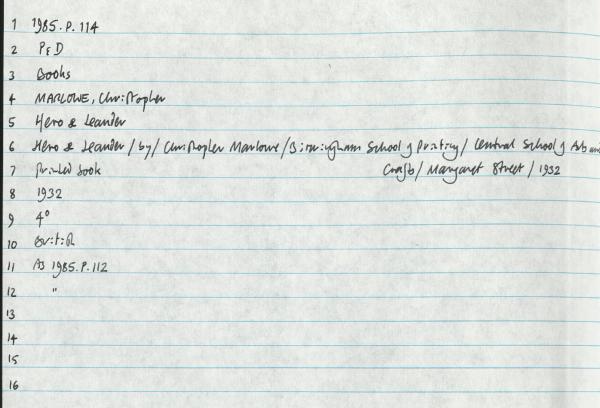 1 1985.P.114
2 P&D
3 Books
4 MARLOWE, Christopher
5 Hero & Leander
6 Hero & Leander / by / Christopher Marlowe / Birmingham School of Printing / Central School of Arts and
Crafts / Margaret Street / 1932
7 Printed book
8 1932
9 4°
10 British
11 As 1985.P.112
12 "
13
14
15
16